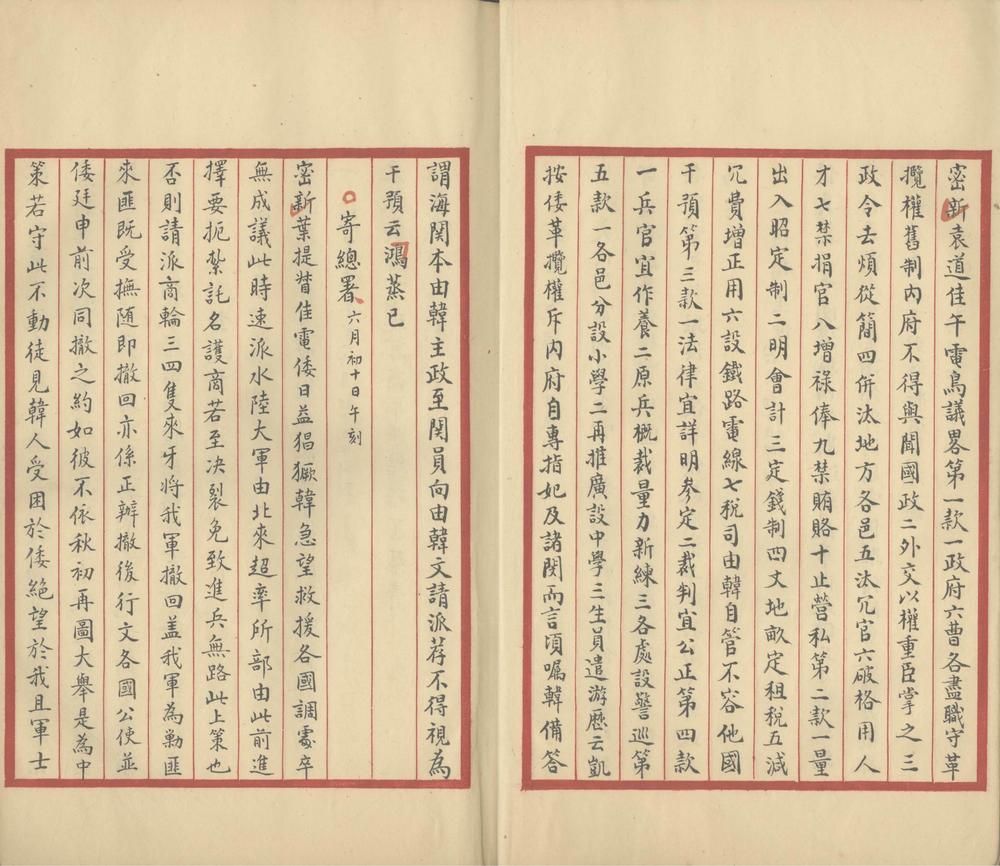 密新袁道佳午電鳥議畧第一款一政府六曹各盡職守革
攬權舊制內府不得與聞國政二外交以權重臣掌之三
政令去煩從簡四併汰地方各邑五汰冗官六破格用人
才七禁捐官八增祿俸九禁賄賂十止營私第二款一量
出入昭定制二明會計三定錢制四丈地畝定租稅五減
冗費增正用六設鐵路電線七稅司由韓自管不容他國
干預第三款一法律宜詳明參定二裁判宜公正第四款
一兵官宜作養二原兵概裁量力新練三各處設警巡第
五款一各邑分設小學二再推廣設中學三生員遣游歷云凱
按倭革攬權斥內府自專指妃及諸閔而言頃囑韓備答
謂海関本由韓主政至関員向由韓文請派荐不得視為
干預云鴻蒸已
寄總署六月初十日午刻
密新葉提督佳電倭日益猖獗韓急望救援各國調處卒
無成議此時速派水陸大軍由北來超率所部由此前進
擇要扼紮託名護商若至決裂免致進兵無路此上策也
否則請派商輪三四隻來牙將我軍撤回盖我軍為勦匪
來匪既受撫随即撤回亦係正辦撤後行文各國公使並
倭廷申前次同撤之約如彼不依秋初再圖大舉是為中
策若守此不動徒見韓人受困於倭絕望於我且軍士